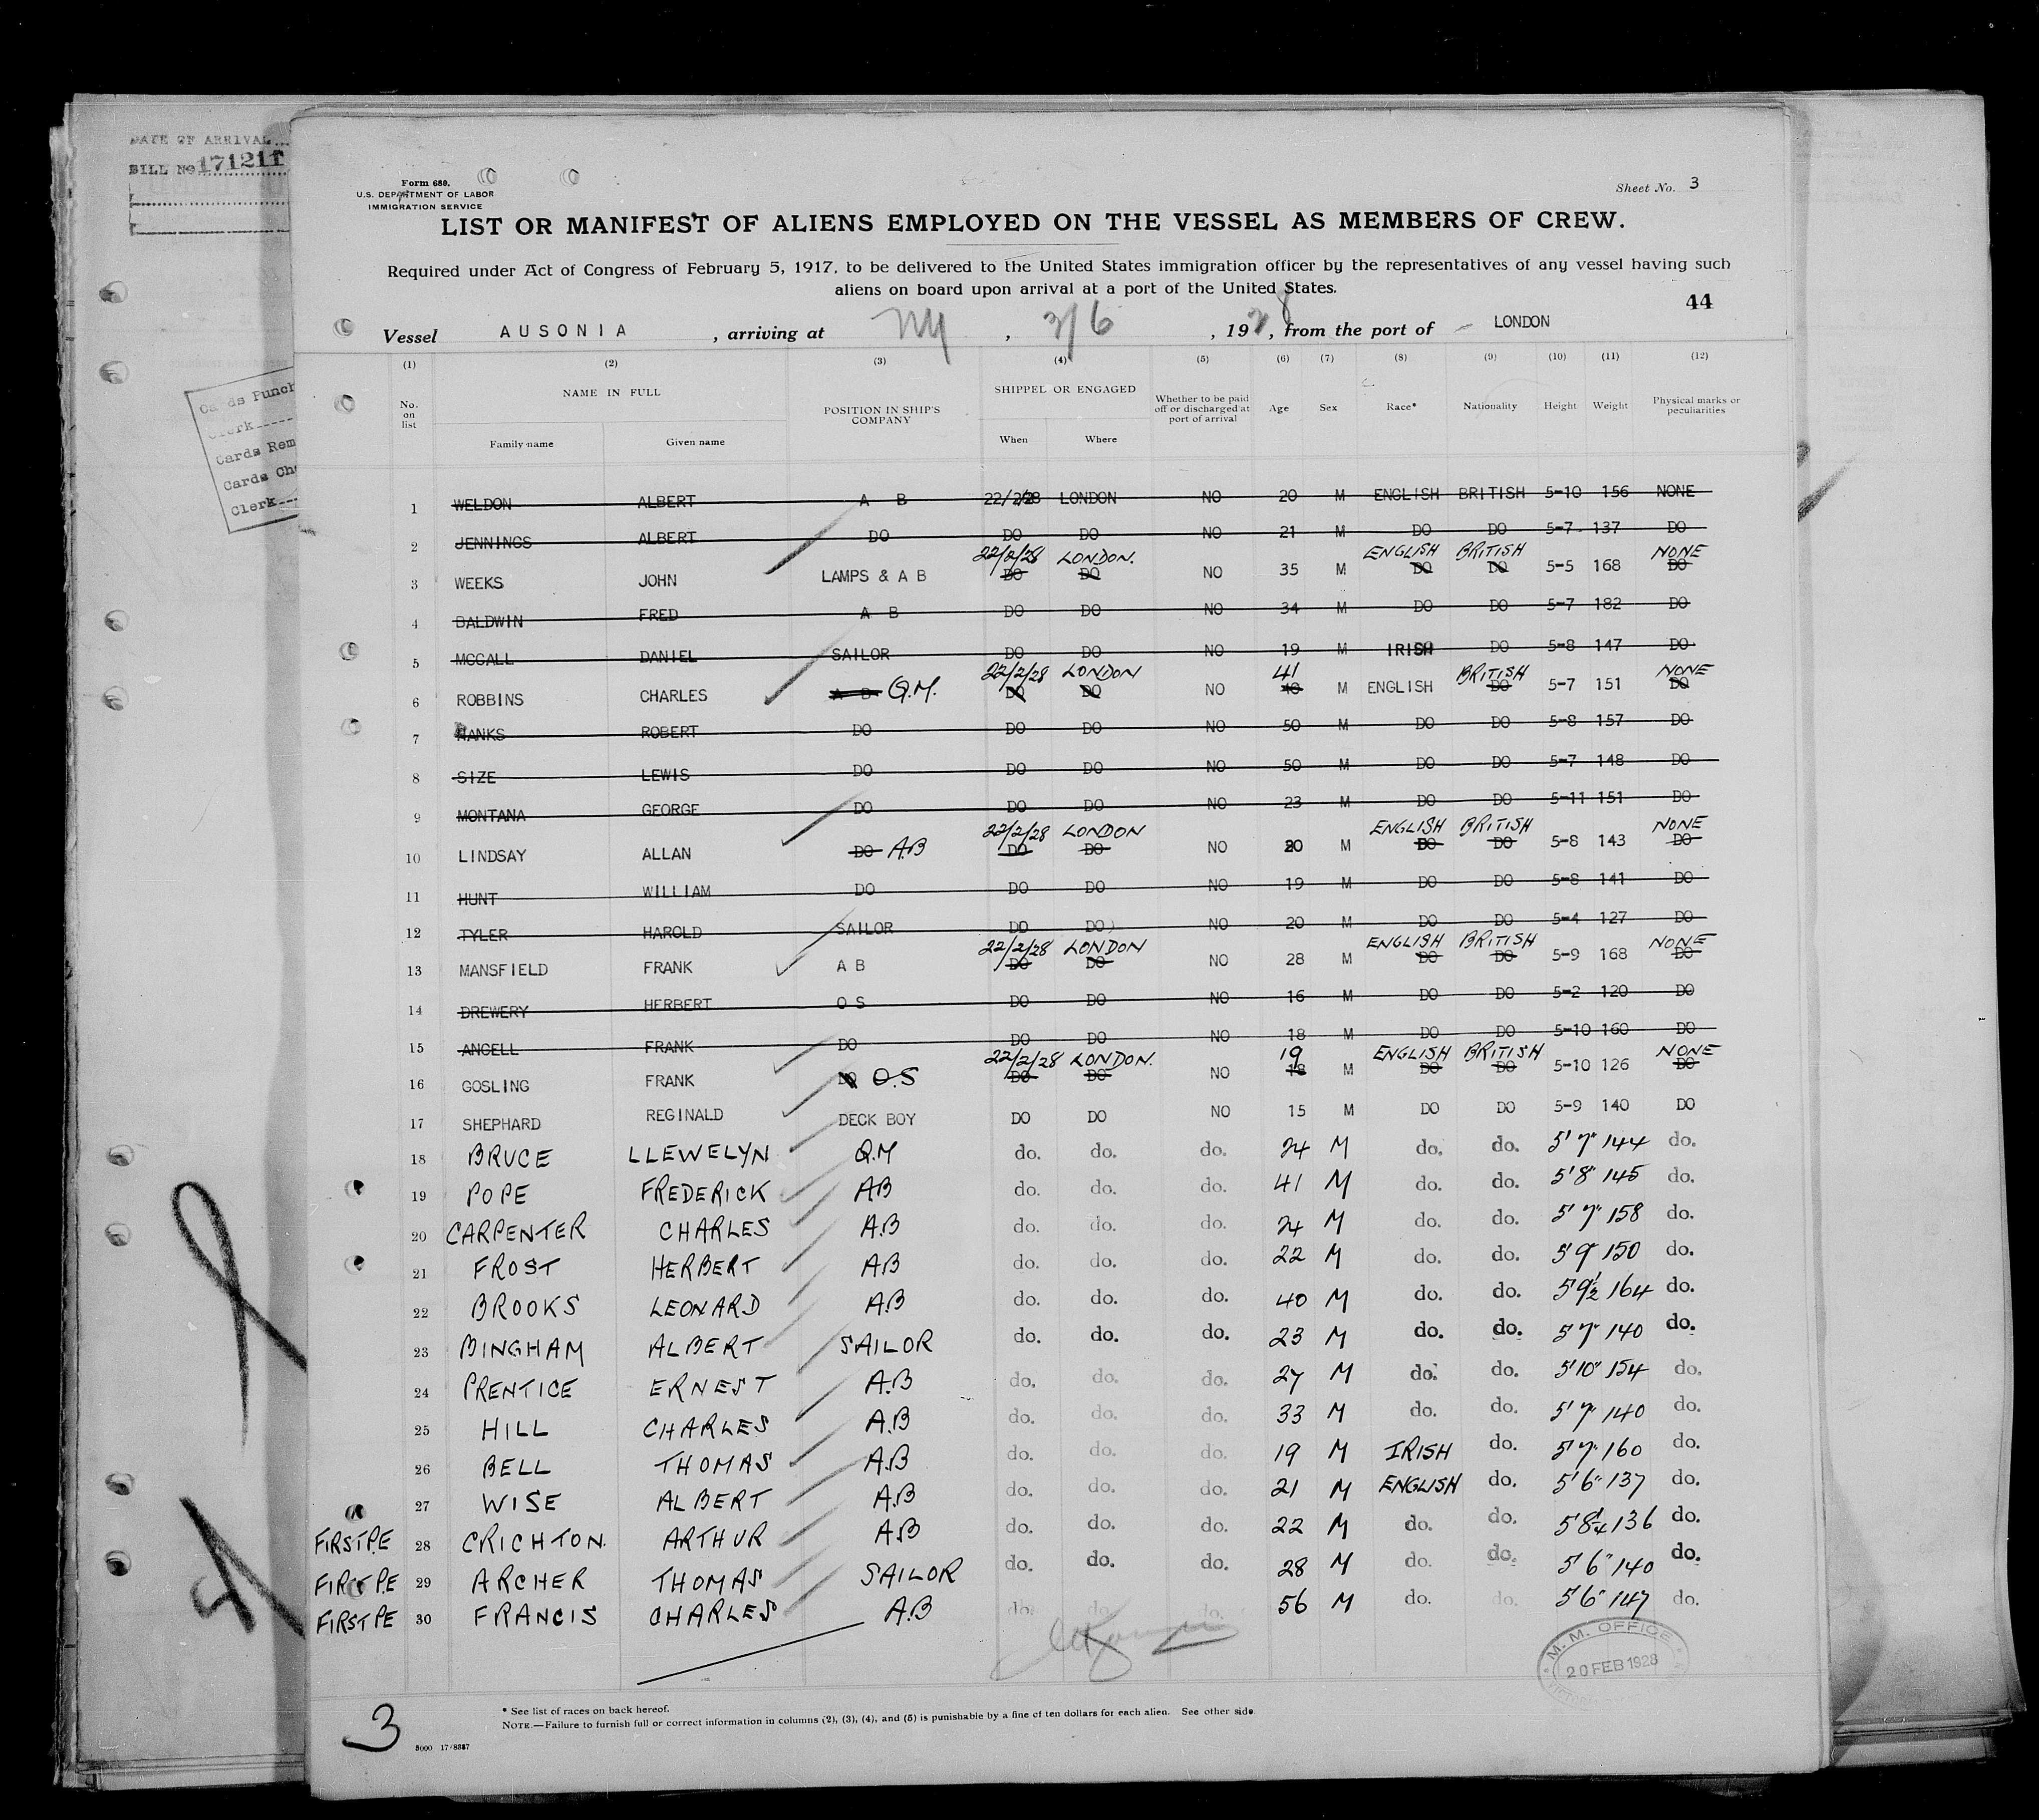 DATE OF ARRIVAL
BILL No 171211
Cards Punch
Clerk
Cards Rem
Cards Ch
Clerk
Form 680.
U.S. DEPARTMENT OF LABOR
IMMIGRATION SERVICE
Sheet No. 3
LIST OR MANIFEST OF ALIENS EMPLOYED ON THE VESSEL AS MEMBERS OF CREW.
Required under Act of Congress of February 5, 1917, to be delivered to the United States immigration officer by the representatives of any vessel having such
aliens on board upon arrival at a port of the United States.
44
Vessel AUSONIA , arriving at NY , 3/6 , 1928, from the port of LONDON
(1) (2) (3) (4) (5) (6) (7) (8) (9) (10) (11) (12)
No. on list NAME IN FULL Family name Given name POSITION IN SHIP'S COMPANY SHIPPEL OR ENGAGED When Where Whether to be paid off or discharged at port of arrival Age Sex Race* Nationality Height Weight Physical marks or peculiarities
1 WELDON ALBERT A B 22/2/28 LONDON NO 20 M ENGLISH BRITISH 5-10 156 NONE
2 JENNINGS ALBERT DO DO DO NO 21 M DO DO 5-7 137 DO
22/2/28 LONDON. ENGLISH BRITISH NONE
3 WEEKS JOHN LAMPS & A B DO DO NO 35 M DO DO 5-5 168 DO
4 BALDWIN FRED A B DO DO NO 34 M DO DO 5-7 182 DO
5 MCCALL DANIEL SAILOR DO DO NO 19 M IRISH DO 5-8 147 DO
22/2/28 LONDON 41 BRITISH NONE
6 ROBBINS CHARLES A B Q.M. DO DO NO 40 M ENGLISH DO 5-7 151 DO
7 HANKS ROBERT DO DO DO NO 50 M DO DO 5-8 157 DO
8 SIZE LEWIS DO DO DO NO 50 M DO DO 5-7 148 DO
9 MONTANA GEORGE DO DO DO NO 23 M DO DO 5-11 151 DO
22/2/28 LONDON ENGLISH BRITISH NONE
10 LINDSAY ALLAN DO A.B DO DO NO 20 M DO DO 5-8 143 DO
11 HUNT WILLIAM DO DO DO NO 19 M DO DO 5-8 141 DO
12 TYLER HAROLD SAILOR DO DO NO 20 M DO DO 5-4 127 DO
22/2/28 LONDON ENGLISH BRITISH NONE
13 MANSFIELD FRANK A B DO DO NO 28 M DO DO 5-9 168 DO
14 DREWERY HERBERT O S DO DO NO 16 M DO DO 5-2 120 DO
15 ANCELL FRANK DO DO DO NO 18 M DO DO 5-10 160 DO
22/2/28 LONDON. 19 ENGLISH BRITISH NONE
16 GOSLING FRANK DO O.S DO DO NO 18 M DO DO 5-10 126 DO
17 SHEPHARD REGINALD DECK BOY DO DO NO 15 M DO DO 5-9 140 DO
18 BRUCE LLEWELYN Q.M do. do. do. 24 M do. do. 5'7" 144 do.
19 POPE FREDERICK AB do. do. do. 41 M do. do. 5'8" 145 do.
20 CARPENTER CHARLES A.B do. do. do. 24 M do. do. 5'7" 158 do.
21 FROST HERBERT A.B do. do. do. 22 M do. do. 5'9" 150 do.
22 BROOKS LEONARD A.B do. do. do. 40 M do. do. 5'9½ 164 do.
23 BINGHAM ALBERT SAILOR do. do. do. 23 M do. do. 5'7" 140 do.
24 PRENTICE ERNEST A.B do. do. do. 27 M do. do. 5'10" 154 do.
25 HILL CHARLES A.B do. do. do. 33 M do. do. 5'7" 140 do.
26 BELL THOMAS A.B do. do. do. 19 M IRISH do. 5'7" 160 do.
27 WISE ALBERT A.B do. do. do. 21 M ENGLISH do. 5'6" 137 do.
FIRST P.E 28 CRICHTON. ARTHUR A.B do. do. do. 22 M do. do. 5'8¼ 136 do.
FIRST P.E 29 ARCHER THOMAS SAILOR do. do. do. 28 M do. do. 5'6" 140 do.
FIRST PE 30 FRANCIS CHARLES A.B do. do. do. 56 M do. do. 5'6" 147 do.
M. M. OFFICE
20 FEB 1928
* See list of races on back hereof.
NOTE.—Failure to furnish full or correct information in columns (2), (3), (4), and (5) is punishable by a fine of ten dollars for each alien. See other side.
3